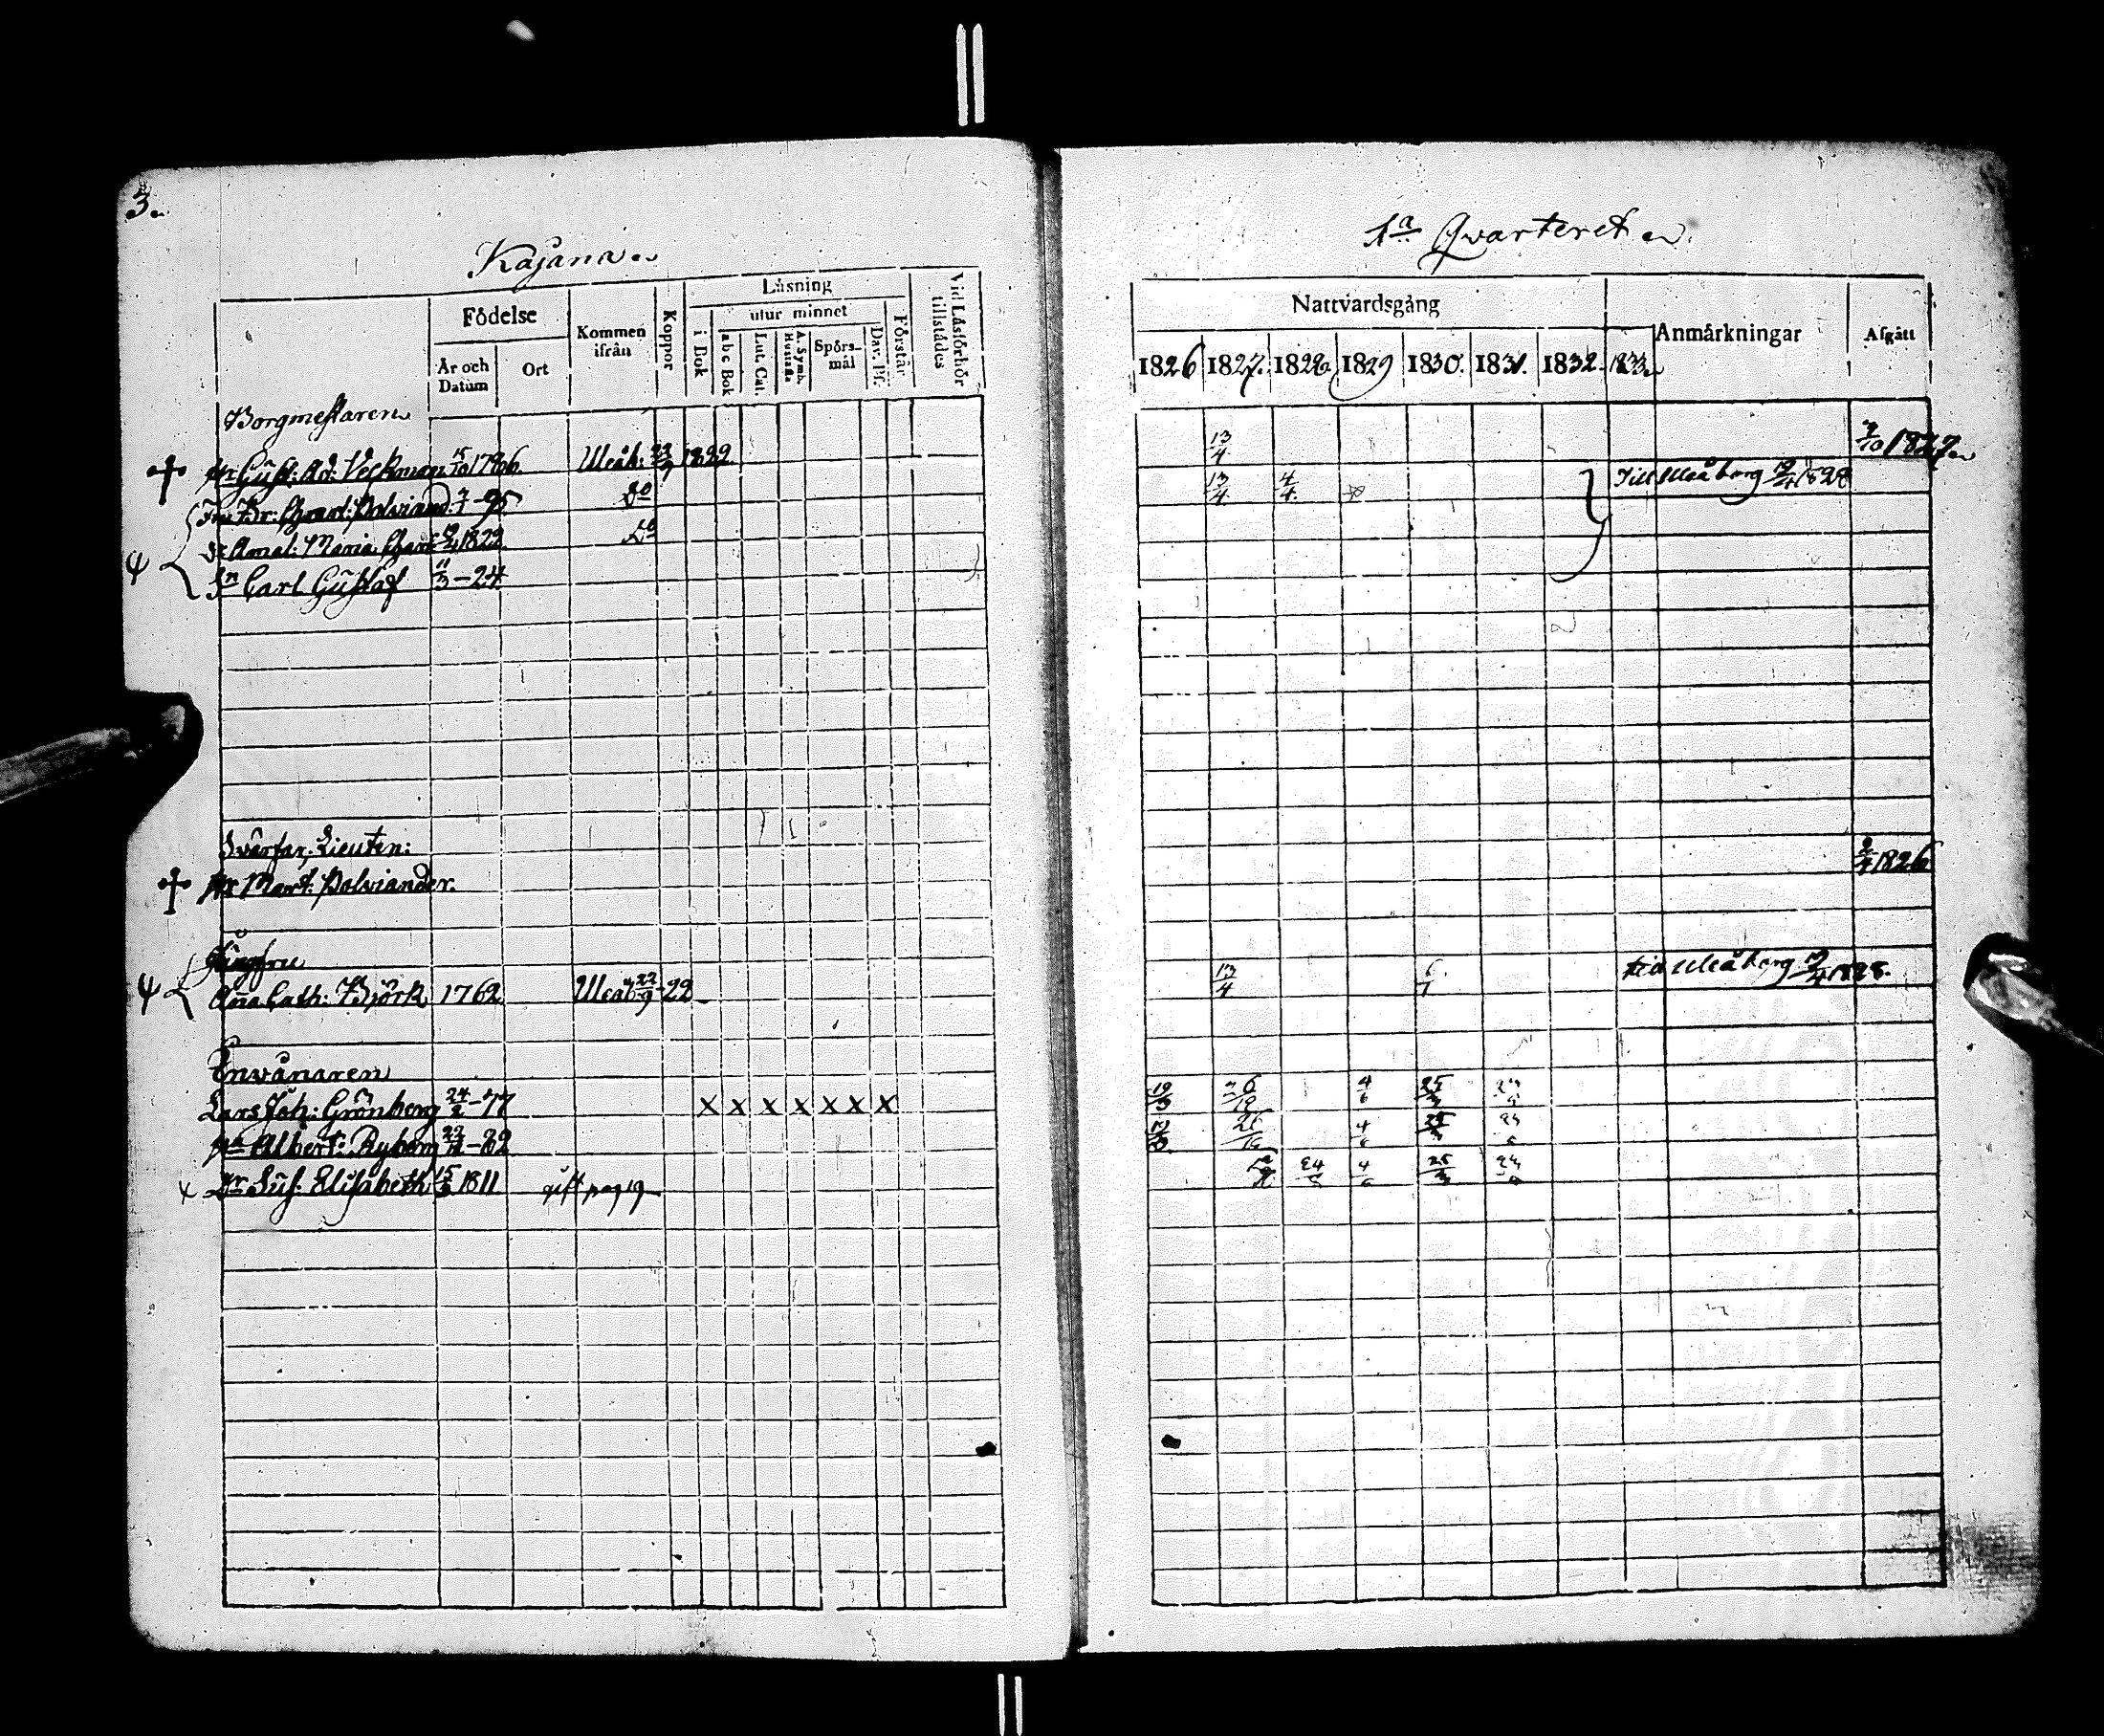 3.
Kajana
Födelse
År och Datum
Ort
Kommen ifrån
Koppor
Läsning
i Bok
utur minnet
abc Bok
Lut. Cat.
A. Symb. Hustafla
Spörsmål
Dav. Ps.
Förstår
Vid Läsförhör tillstädes
Borgmestaren
Hr Gust: Ad: Veckman 15/10 1786. Uleåb: 22/9 1822
Fru Br: Charl: Polviand: 7-95 Do
Dr Amal: Maria Charl 1822 Do
Sn Carl Gustaf 11/3 - 24
Svärfar, Lieuten:
Hr Mart: Polviander.
Jungfru
Aña Cath: Björk 1762 Uleåb 22/9 - 22
Invånaren
Lars Joh: Grönberg 24/2 - 77 x x x x x x x
Hu Albert: Ryberg - 82
Dr Sus: Elisabeth 1811 gift pag 19
1a Qvarteret
Nattvardsgång
1826 1827. 1828 1829 1830. 1831. 1832. 1833
Anmärkningar
Afgått
13/4 7/10 1827
13/4 4/4 Till Uleåborg 19/4 1828
2/4 1826
13/4 till Uleåborg 19/4 1828.
19/3 26/12 4/6 25/3
4/6 25/3
4/6 25/3